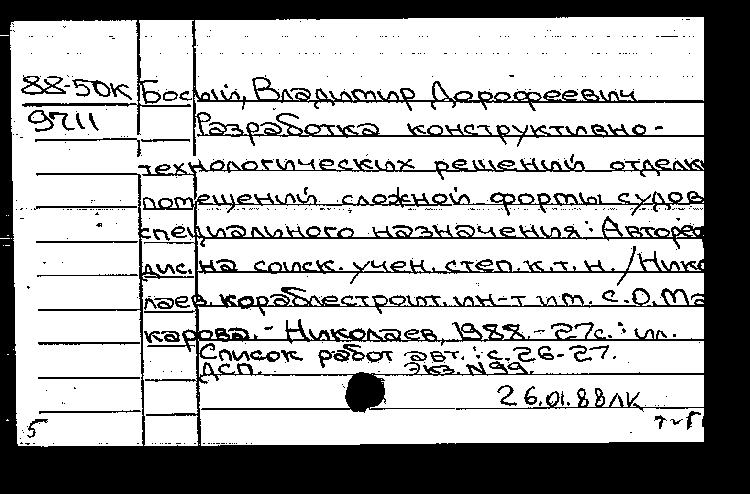 88-50К Босый, Владимир Дорофеевич
9711 Разработка конструктивно-
технологических решений отделк
помещений сложной формы судов
специального назначения: Авторе
дис. на соиск. учен. степ. к.т.н. /Нико
лаев. кораблестроит. ин-т им. С.О. Ма
карова. - Николаев, 1988. - 27с. : ил.
Список работ авт.: с. 26-27.
ДСП. Экз. N99.
26.01.88ЛК
5